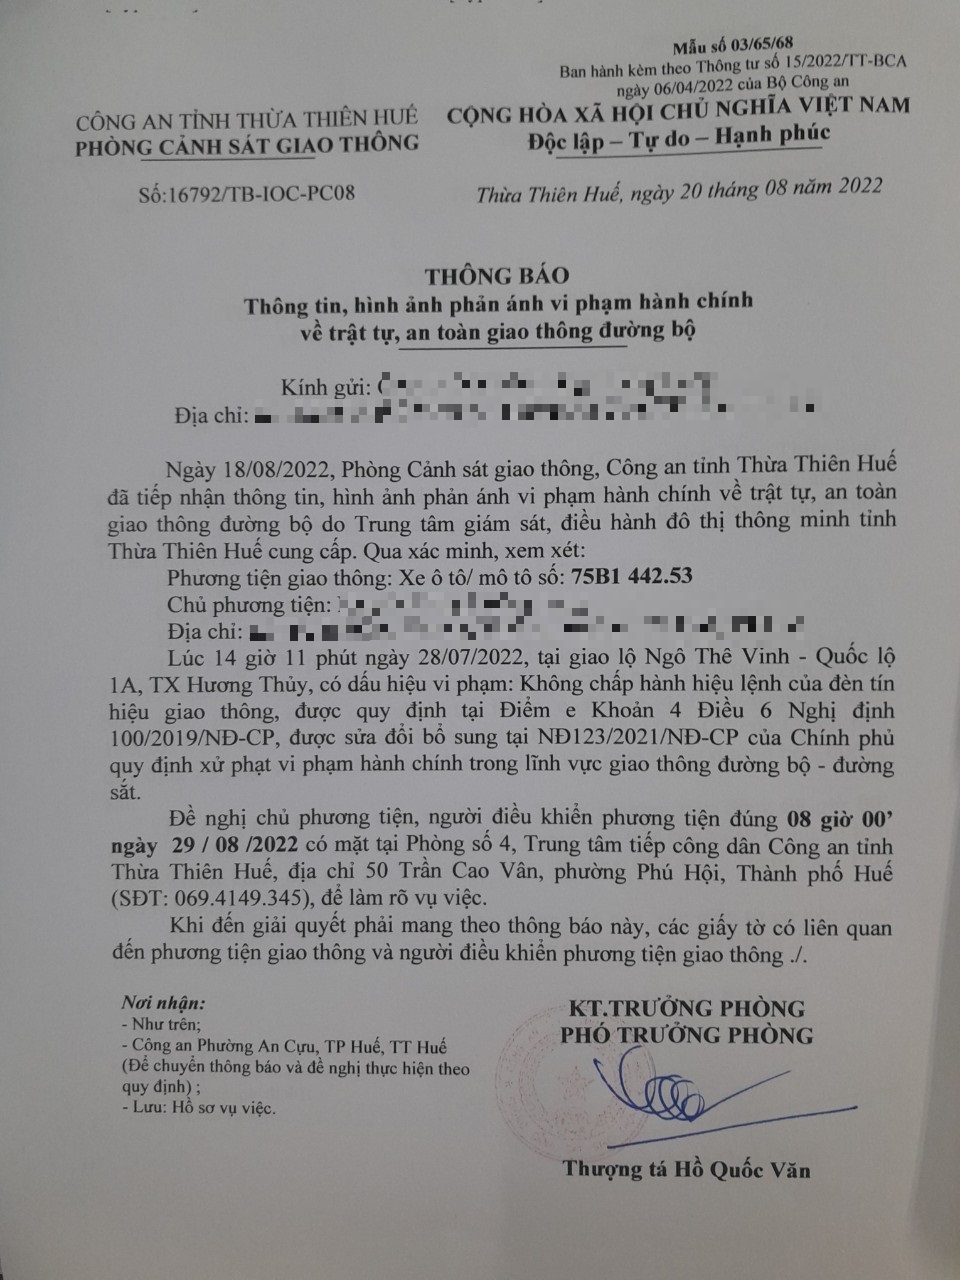 Mẫu số 03/65/68
Ban hành kèm theo Thông tư số 15/2022/TT-BCA
ngày 06/04/2022 của Bộ Công an
CÔNG AN TỈNH THỪA THIÊN HUẾ
PHÒNG CẢNH SÁT GIAO THÔNG
CỘNG HÒA XÃ HỘI CHỦ NGHĨA VIỆT NAM
Độc lập – Tự do – Hạnh phúc
Số:16792/TB-IOC-PC08
Thừa Thiên Huế, ngày 20 tháng 08 năm 2022
THÔNG BÁO
Thông tin, hình ảnh phản ánh vi phạm hành chính
về trật tự, an toàn giao thông đường bộ
Kính gửi:
Địa chỉ:
Ngày 18/08/2022, Phòng Cảnh sát giao thông, Công an tỉnh Thừa Thiên Huế
đã tiếp nhận thông tin, hình ảnh phản ánh vi phạm hành chính về trật tự, an toàn
giao thông đường bộ do Trung tâm giám sát, điều hành đô thị thông minh tỉnh
Thừa Thiên Huế cung cấp. Qua xác minh, xem xét:
Phương tiện giao thông: Xe ô tô/ mô tô số: 75B1 442.53
Chủ phương tiện:
Địa chỉ:
Lúc 14 giờ 11 phút ngày 28/07/2022, tại giao lộ Ngô Thê Vinh - Quốc lộ
1A, TX Hương Thủy, có dấu hiệu vi phạm: Không chấp hành hiệu lệnh của đèn tín
hiệu giao thông, được quy định tại Điểm e Khoản 4 Điều 6 Nghị định
100/2019/NĐ-CP, được sửa đổi bổ sung tại NĐ123/2021/NĐ-CP của Chính phủ
quy định xử phạt vi phạm hành chính trong lĩnh vực giao thông đường bộ - đường
sắt.
Đề nghị chủ phương tiện, người điều khiển phương tiện đúng 08 giờ 00’
ngày 29 / 08 /2022 có mặt tại Phòng số 4, Trung tâm tiếp công dân Công an tỉnh
Thừa Thiên Huế, địa chỉ 50 Trần Cao Vân, phường Phú Hội, Thành phố Huế
(SĐT: 069.4149.345), để làm rõ vụ việc.
Khi đến giải quyết phải mang theo thông báo này, các giấy tờ có liên quan
đến phương tiện giao thông và người điều khiển phương tiện giao thông ./.
Nơi nhận:
- Như trên;
- Công an Phường An Cựu, TP Huế, TT Huế
(Để chuyển thông báo và đề nghị thực hiện theo
quy định) ;
- Lưu: Hồ sơ vụ việc.
KT.TRƯỞNG PHÒNG
PHÓ TRƯỞNG PHÒNG
Thượng tá Hồ Quốc Văn